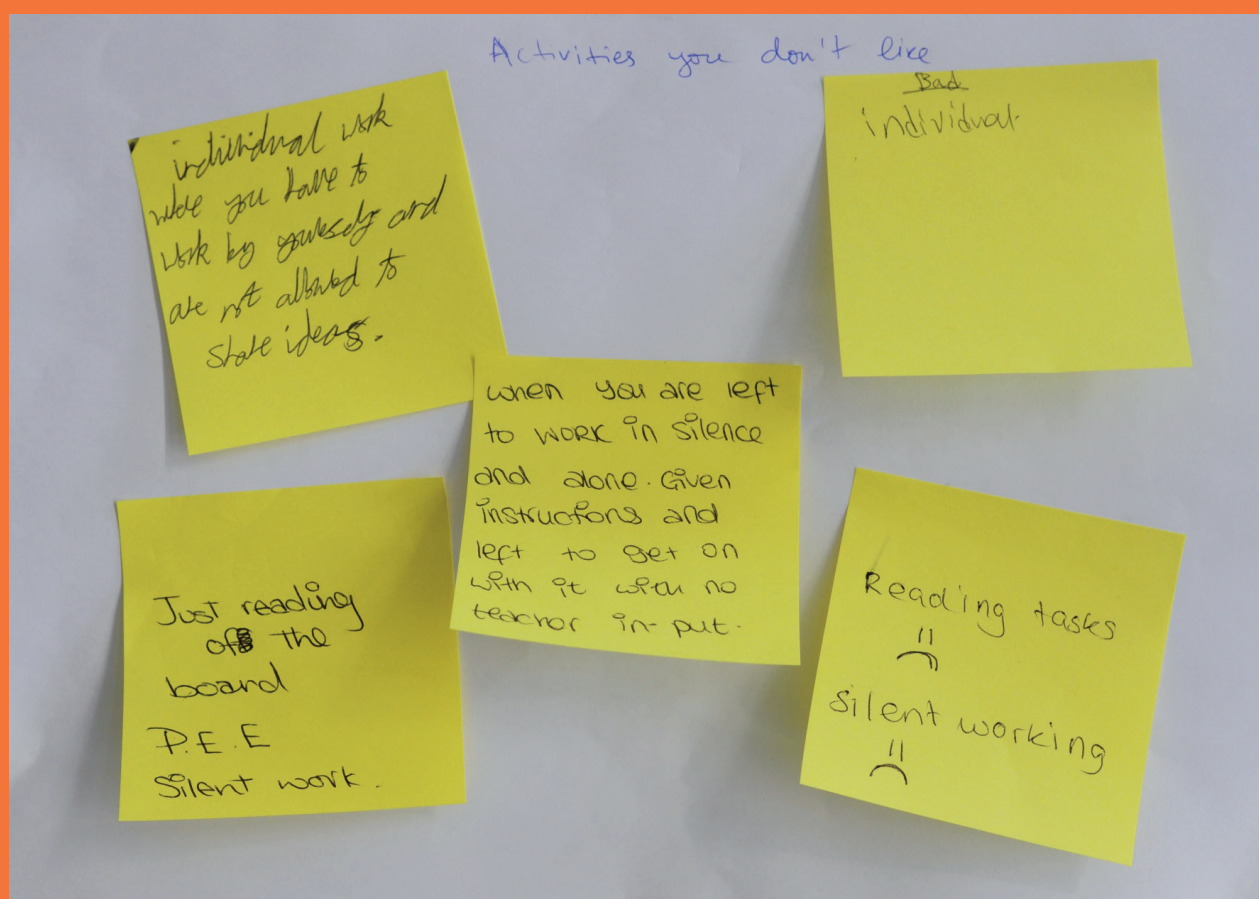 Activities you don't like
individual work
where you have to
work by yourself and
are not allowed to
share ideas.
Bad
individual.
when you are left
to work in silence
and alone. Given
instructions and
left to get on
with it with no
teacher in-put.
Just reading
off the
board
P.E.E
Silent work.
Reading tasks
Silent working